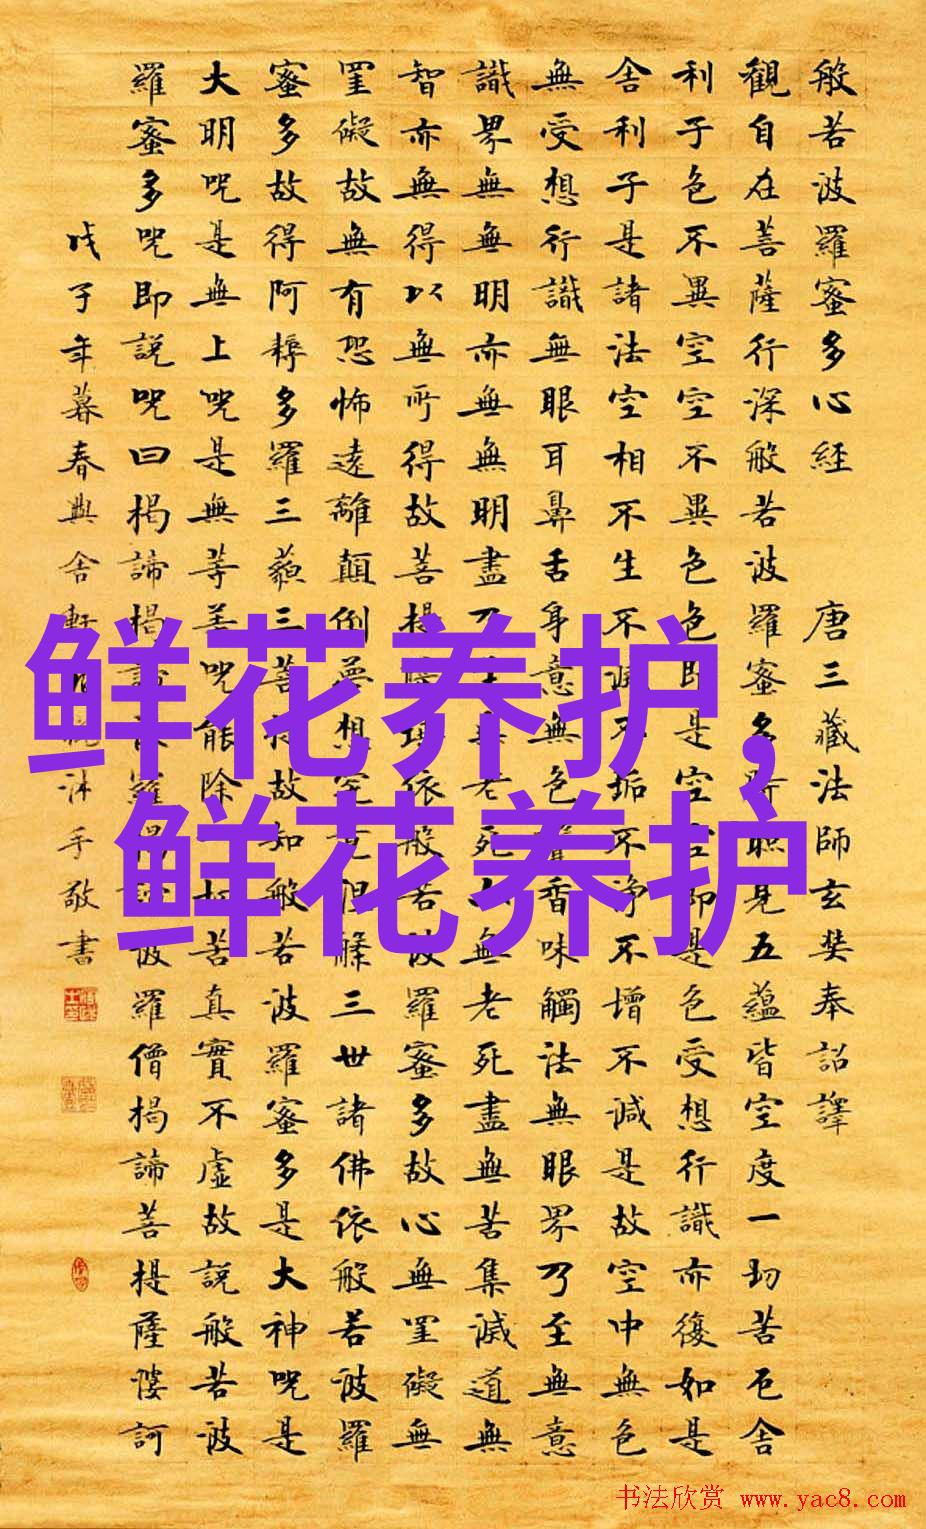 般若波羅蜜多心経 唐三藏法師玄奘奉詔譯
觀自在菩薩行深般若波羅蜜多時照見五蘊皆空度一切苦厄舍
利子色不異空空不異色色即是空空即是色受想行識亦復如是
舍利子是諸法空相不生不滅不垢不淨不增不減是故空中無色
無受想行識無眼耳鼻舌身意無色聲香味觸法無眼界乃至無意
識界無無明亦無無明盡乃至無老死亦無老死盡無苦集滅道無
智亦無得以無所得故菩提薩埵依般若波羅蜜多故心無罣礙無
罣礙故無有恐怖遠離顛倒夢想究竟涅槃三世諸佛依般若波羅
蜜多故得阿耨多羅三藐三菩提故知般若波羅蜜多是大神咒是
大明咒是無上咒是無等等咒能除一切苦真實不虛故說般若波
羅蜜多咒即說咒曰揭諦揭諦波羅揭諦波羅僧揭諦菩提薩婆訶
戊子年暮春興舍軒沐手敬書
鲜花养护，
鲜花养护
书法欣赏 www.yac8.com